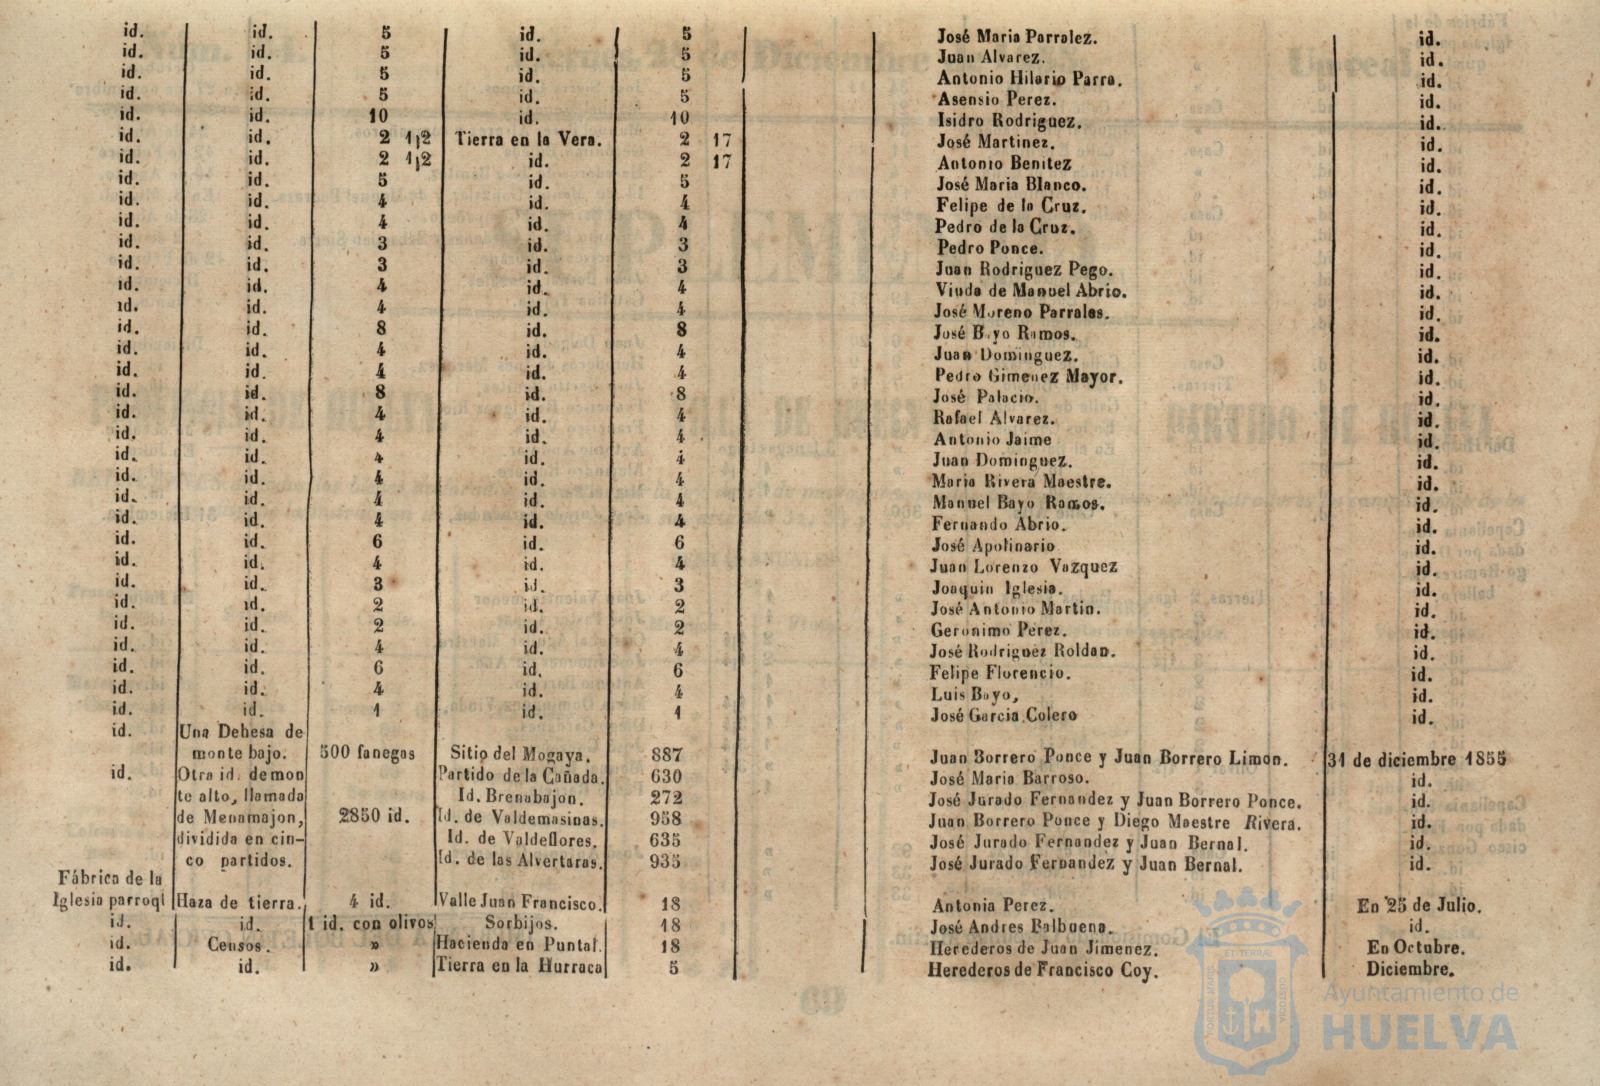 id. id. 5 id. 5 José Maria Parralez. id.
id. id. 5 id. 5 Juan Alvarez. id.
id. id. 5 id. 5 Antonio Hilario Parra. id.
id. id. 5 id. 5 Asensio Perez. id.
id. id. 10 id. 10 Isidro Rodriguez. id.
id. id. 2 1¡2 Tierra en la Vera. 2 17 José Martinez. id.
id. id. 2 1¡2 id. 2 17 Antonio Benitez id.
id. id. 5 id. 5 José Maria Blanco. id.
id. id. 4 id. 4 Felipe de la Cruz. id.
id. id. 4 id. 4 Pedro de la Cruz. id.
id. id. 3 id. 3 Pedro Ponce. id.
id. id. 3 id. 3 Juan Rodriguez Pego. id.
id. id. 4 id. 4 Viuda de Manuel Abrio. id.
id. id. 4 id. 4 José Moreno Parrales. id.
id. id. 8 id. 8 José Bayo Ramos. id.
id. id. 4 id. 4 Juan Dominguez. id.
id. id. 4 id. 4 Pedro Gimenez Mayor. id.
id. id. 8 id. 8 José Palacio. id.
id. id. 4 id. 4 Rafael Alvarez. id.
id. id. 4 id. 4 Antonio Jaime id.
id. id. 4 id. 4 Juan Dominguez. id.
id. id. 4 id. 4 Maria Rivera Maestre. id.
id. id. 4 id. 4 Manuel Bayo Ramos. id.
id. id. 4 id. 4 Fernando Abrio. id.
id. id. 6 id. 6 José Apolinario id.
id. id. 4 id. 4 Juan Lorenzo Vazquez id.
id. id. 3 id. 3 Joaquin Iglesia. id.
id. id. 2 id. 2 José Antonio Martin. id.
id. id. 2 id. 2 Geronimo Perez. id.
id. id. 4 id. 4 José Rodriguez Roldan. id.
id. id. 6 id. 6 Felipe Florencio. id.
id. id. 4 id. 4 Luis Bayo, id.
id. id. 1 id. 1 José Garcia Colero id.
id. Una Dehesa de
monte bajo. 500 fanegas Sitio del Mogaya. 887 Juan Borrero Ponce y Juan Borrero Limon. 31 de diciembre 1855
id. Otra id. de mon Partido de la Cañada. 630 José Maria Barroso. id.
te alto, llamada Id. Brenabajon. 272 José Jurado Fernandez y Juan Borrero Ponce. id.
de Menamajon, 2850 id. Id. de Valdemasinas. 958 Juan Borrero Ponce y Diego Maestre Rivera. id.
dividida en cin- Id. de Valdeflores. 635 José Jurado Fernandez y Juan Bernal. id.
co partidos. Id. de las Alvertaras. 935 José Jurado Fernandez y Juan Bernal. id.
Fábrica de la
Iglesia parroql Haza de tierra. 4 id. Valle Juan Francisco. 18 Antonia Perez. En 25 de Julio.
id. id. 1 id. con olivos Sorbijos. 18 José Andres Balbuena. id.
id. Censos. » Hacienda en Puntal. 18 Herederos de Juan Jimenez. En Octubre.
id. id. » Tierra en la Hurraca 5 Herederos de Francisco Coy. Diciembre.
Ayuntamiento de
HUELVA